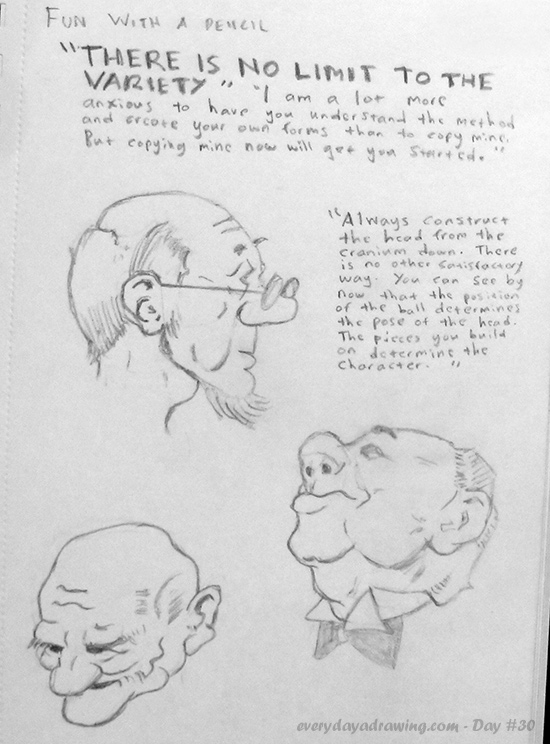 FUN WITH A PENCIL
"THERE IS NO LIMIT TO THE
VARIETY" "I am a lot more
anxious to have you understand the method
and create your own forms than to copy mine.
But copying mine now will get you started."
"Always construct
the head from the
cranium down. There
is no other satisfactory
way. You can see by
now that the position
of the ball determines
the pose of the head.
The pieces you build
on determine the
character."
everydayadrawing.com - Day #30